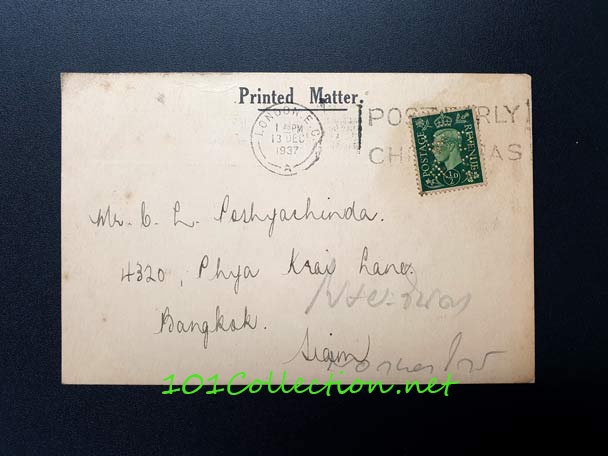 Printed Matter.
LONDON. E.C.
13 DEC
1937
A
POST EARLY
CHRISTMAS
POSTAGE REVENUE
½D
Mr. C. L. Poshyachinda.
4320, Phya Krai Lane.
Bangkok.
Siam
101Collection.net